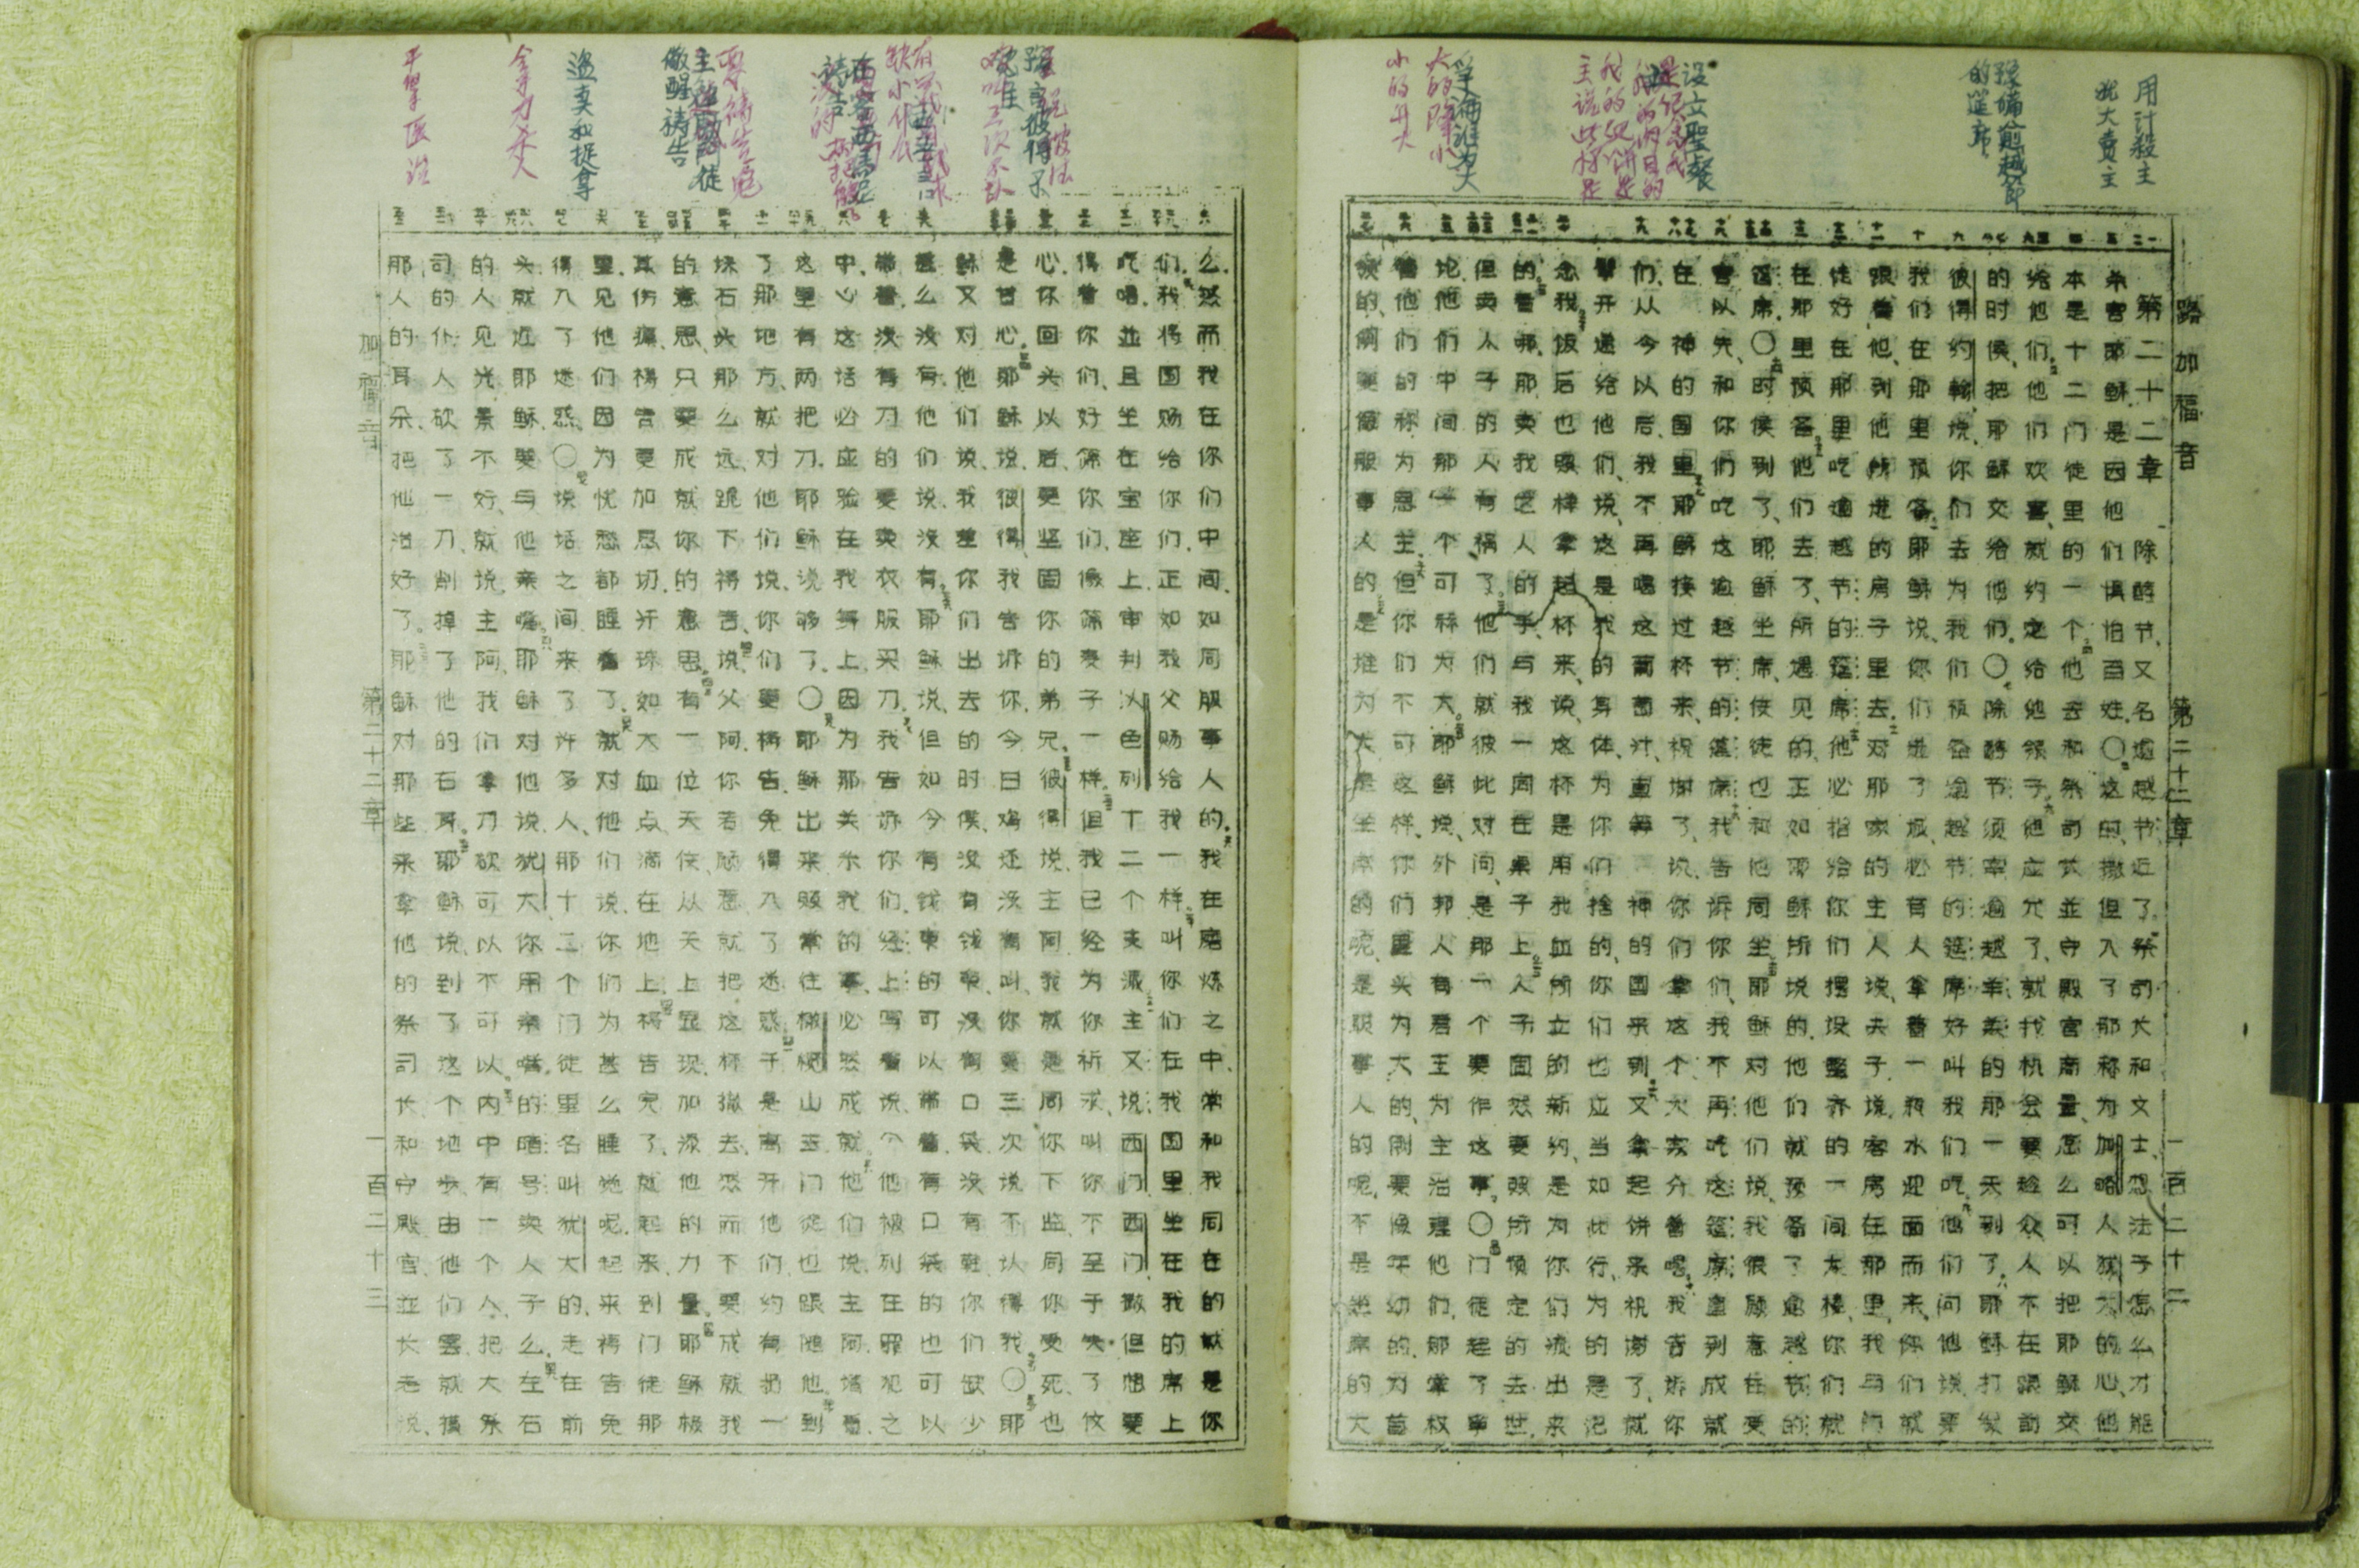 用计殺主
犹大賣主
豫備逾越節的筵席
设立聖餐
爭論誰为大
路加福音 第二十二章 一百二十二
第二十二章 除酵节、又名逾越节、近了。祭司长和文士、想法子怎么才能
杀害耶稣、是因他们惧怕百姓。〇这时、撒但入了那称为加略人犹大的心、他
本是十二门徒里的一个。他去和祭司长並守殿官商量、怎么可以把耶稣交
给他们。他们欢喜、就约定给他银子。他应允了、就找机会、要趁众人不在跟前
的时侯、把耶稣交给他们。〇除酵节、须宰逾越羊羔的那一天到了。耶稣打发
彼得约翰、说、你们去为我们预备逾越节的筵席、好叫我们吃。他们问他说、要
我们在那里预备。耶稣说、你们进了城、必有人拿着一瓶水迎面而来、你们就
跟着他、到他所进的房子里去。对那家的主人说、夫子说、客房在那里、我与门
徒好在那里吃逾越节的筵席。他必指给你们摆设整齐的一间大楼、你们就
在那里预备。他们去了、所遇见的、正如耶稣所说的、他们就预备了逾越节的
筵席。〇时侯到了、耶稣坐席、使徒也和他同坐。耶稣对他们说、我很愿意在受
害以先、和你们吃这逾越节的筵席。我告诉你们、我不再吃这筵席、直到成就
在神的国里。耶稣接过杯来、祝谢了、说、你们拿这个、大家分着喝。我告诉你
们、从今以后、我不再喝这葡萄汁、直等神的国来到。又拿起饼来祝谢了、就
擘开递给他们、说、这是我的身体、为你们捨的、你们也应当如此行、为的是记
念我。饭后也照样拿起杯来、说、这杯是用我血所立的新约、是为你们流出来
的。看哪、那卖我之人的手、与我一同在桌子上。人子固然要照所预定的去世、
但卖人子的人有祸了。他们就彼此对问、是那一个要作这事。〇门徒起了争
论、他们中间那一个可称为大。耶稣说、外邦人有君王为主治理他们、那掌权
管他们的称为恩主。但你们不可这样、你们里头为大的、倒要像年幼的、为首
领的、倒要像服事人的。是谁为大、是坐席的呢、是服事人的呢、不是坐席的大
豫言彼得不認主
儆醒祷告
盗卖和捉拿
拿刀杀人
么。然而我在你们中间、如同服事人的。我在磨炼之中、常和我同在的就是你
们。我将国赐给你们、正如我父赐给我一样。叫你们在我国里、坐在我的席上
吃喝。並且坐在宝座上、审判以色列十二个支派。主又说、西门、西门、撒但想要
得着你们、好筛你们、像筛麦子一样。但我已经为你祈求、叫你不至于失了伩
心。你回头以后、要坚固你的弟兄。彼得说、主阿、我就是同你下监、同你受死、也
是甘心。耶稣说、彼得、我告诉你、今日鸡还没有叫、你要三次说不认得我。〇耶
稣又对他们说、我差你们出去的时侯、没有钱囊、没有口袋、没有鞋、你们缺少
甚么没有。他们说、没有。耶稣说、但如今有钱囊的可以带着、有口袋的也可以
带着、没有刀的要卖衣服买刀。我告诉你们、经上写着说、他被列在罪犯之
中、这话必应验在我身上、因为那关系我的事、必然成就。他们说、主阿、请看、
这里有两把刀、耶稣说、够了。〇耶稣出来、照常往橄榄山去、门徒也跟随他。到
了那地方、就对他们说、你们要祷告、免得入了迷惑。于是离开他们、约有扔一
块石头那么远、跪下祷告、说、父阿、你若愿意、就把这杯撤去、然而不要成就我
的意思、只要成就你的意思。有一位天使、从天上显现、加添他的力量。耶稣极
其伤痛、祷告更加恳切、汗珠如大血点、滴在地上。祷告完了、就起来、到门徒那
里、见他们因为忧愁都睡着了。就对他们说、你们为甚么睡觉呢、起来祷告、免
得入了迷惑。〇说话之间、来了许多人、那十二个门徒里名叫犹大的、走在前
头、就近耶稣、要与他亲嘴。耶稣对他说、犹大、你用亲嘴的暗号卖人子么。左右
的人见光景不好、就说、主阿、我们拿刀砍可以不可以。内中有一个人、把大祭
司的仆人砍了一刀、削掉了他的右耳。耶稣说、到了这个地步、由他们罢、就摸
那人的耳朵、把他治好了。耶稣对那些来拿他的祭司长和守殿官並长老说、
加福音 第二十二章 一百二十三